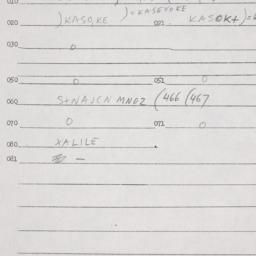 010
)=KASEVOKE
020 )KASO,KE 021 . KASOK+)=
030 0
050 0 051 0
060 S+NAJCN MNGZ (466 (467
070 0 071 0
080 XALILE
081 —